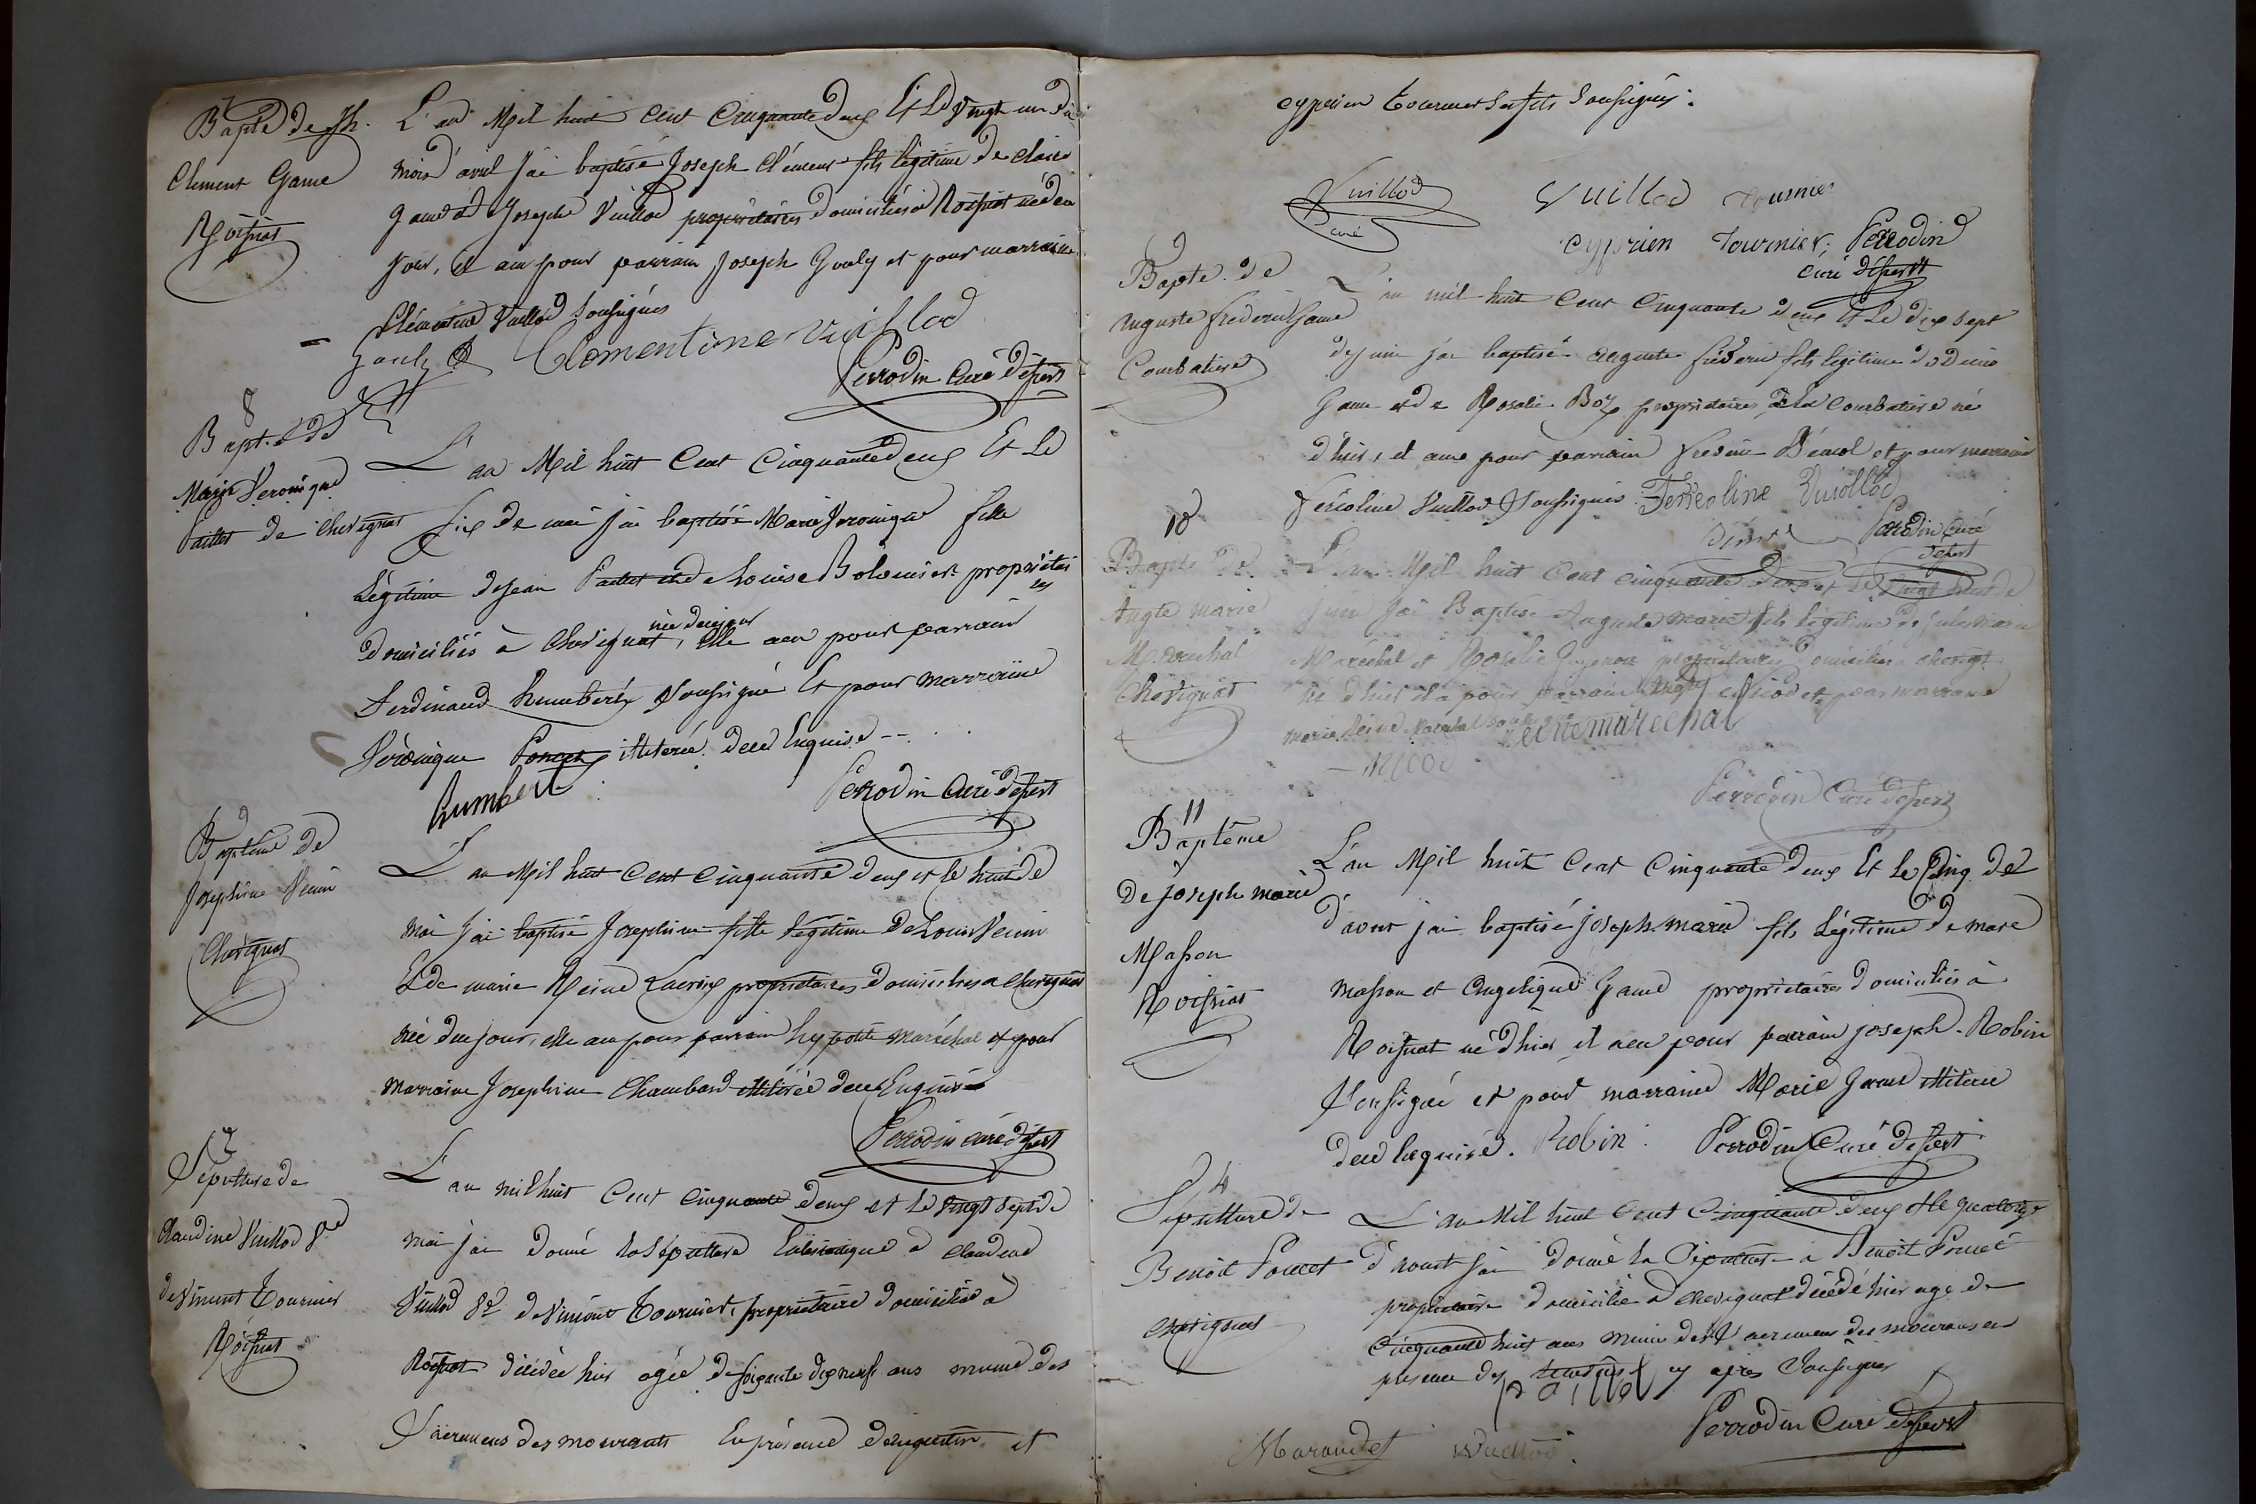 7
Bapte de Jh.
Clément Game
Roissiat
L'an Mil huit Cent Cinquante deux Et Le Vingt un du
mois d'avril j'ai baptisé Joseph Clément fils légitime de
Game et Joseph Vuillod propriétaires domiciliés à Roissiat né de ce
jour, il a eu pour parrain Joseph Gouly et pour marraine
Clémentine Vuillod Soussignés
Gouly Clementine Vuillod
Perrodin Curé
8
Bapt. de
Marie Véronique
Paillet de Chevignat
L'an Mil huit Cent Cinquante deux Et Le
Six de mai j'ai baptisé Marie Véronique fille
Légitime de Jean Paillet et de Louise Bolomier propriétai
res
née de ce jour
domiciliés à Chevignat, elle a eu pour parrain
Ferdinand humbert Soussigné Et pour marraine
Véronique Poncet illiterée de ce Enquise
humbert
Perrodin Curé
9
Baptême de
Joséphine
Chevignat
L'an Mil huit Cent Cinquante deux et le huit de
mai j'ai baptisé Joséphine fille Légitime de Louis
Et de marie Reine Lacroix propriétaires domiciliés à Chevignat
née du jour, elle a eu pour parrain hypolite maréchal et pour
marraine Joséphine Chambard illiterée de ce Enquise
Perrodin curé
3
Sépulture de
Claudine Vuillod Ve
de Vincent Tournier
Roissiat
L'an mil huit Cent Cinquante deux et le vingt sept de
mai j'ai donné la Sépulture à Claudine
Vuillod Ve de Vincent Tournier, propriétaire domiciliée à
Roissiat décédée hier agée de soixante dix neuf ans munie des
Sacremens des mourants En présence et
cyprien tournier son fils Soussignés.
Vuillod Vuillod Tournier
curé
Cyprien Tournier, Perrodin
Curé
9
Bapte de
Auguste fréderic Game
Courbatière
L'an mil huit Cent Cinquante deux Et Le dix sept
de juin j'ai baptisé auguste fréderic fils légitime de
Game et de Rosalie propriétaires à La Courbatière né
d'hier, il a eu pour parrain et pour marraine
Vuillod Soussignés Ferreoline Vuiollod
Perrodin Curé
10
Bapte de
Augte marie
Maréchal
Chevignat
L'an Mil huit Cent cinquante deux et le vingt huit de
juin j'ai Baptisé Auguste marie fils légitime de
Maréchal et Rosalie propriétaires domiciliés à
né d'hier il a pour parrain Augte Nicod et pour marraine
marie Reine Maréchal
Reine maréchal
Nicod
Perrodin Curé
11
Baptême
De Joseph marie
Masson
Roissiat
L'an Mil huit Cent Cinquante deux Et Le Cinq
d'aout j'ai baptisé joseph marie fils Légitime de marc
masson et angélique Game propriétaires domiciliés à
Roissiat né d'hier il a eu pour parrain joseph Robin
Soussigné et pour marraine Marie Game illiterée
de ce Enquise. Robin. Perrodin Curé
4
Sépulture de
Benoit Poncet
Chevignat
L'an Mil huit Cent Cinquante deux et le quatorze
d'aout j'ai donné la Sépulture à Benoit Poncet
propriétaire domicilié à Chevignat décédé hier agé de
Cinquante huit ans muni des Sacremens des mourans en
présence des témoins cy après Soussignés
paillet
Marandet Vuillod.
Perrodin Curé